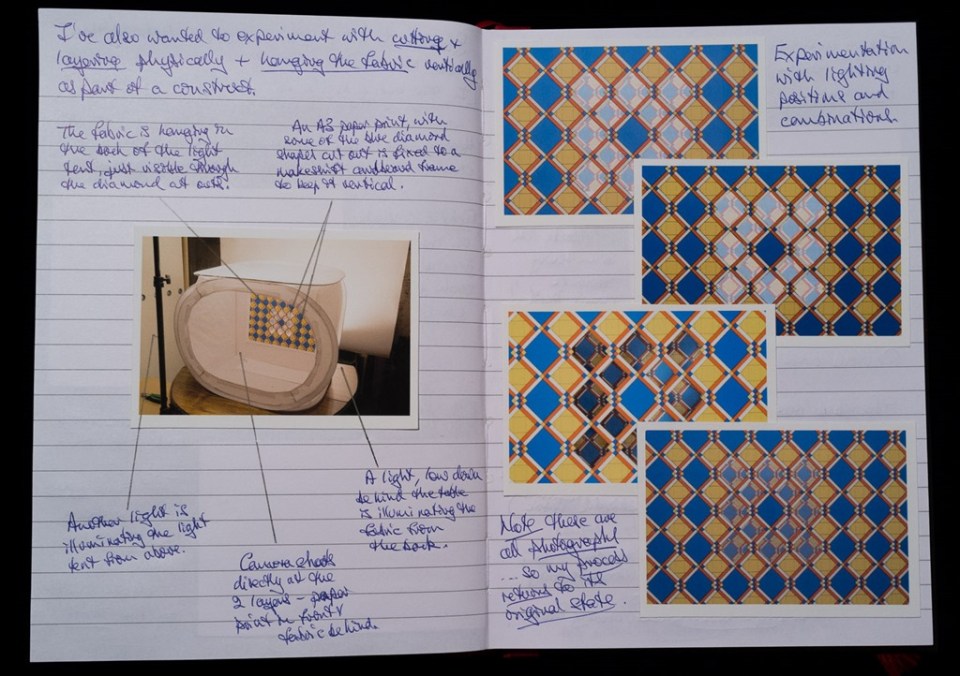 I've also wanted to experiment with cutting +
layering physically + hanging the fabric vertically
as part of a construct.
The fabric is hanging in
the back of the light
tent, just visible through
the diamond cut outs.
An A3 paper print, with
some of the blue diamond
shapes cut out is fixed to a
makeshift cardboard frame
to keep it vertical.
Another light is
illuminating the light
tent from above.
Camera shoots
directly at the
2 layers – paper
print in front &
fabric behind.
A light, low down
behind the table
is illuminating the
fabric from
the back.
Experimentation
with lighting
positions and
combinations
Note these are
all photographs
...so my process
returns to its
original state.